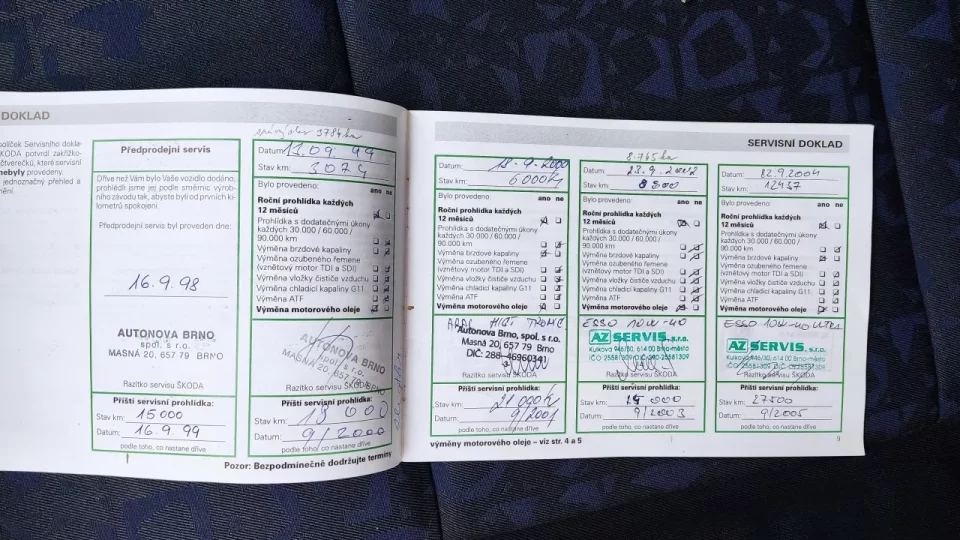 DOKLAD
políček Servisního dokla-
ŠKODA potvrdí zakřížko-
čtverečků, které servisní
nebyly provedeny.
jednoznačný přehled a
Předprodejní servis
Dříve než Vám bylo Vaše vozidlo dodáno,
prohlédli jsme jej podle směrnic výrob-
ního závodu tak, abyste byli od prvních ki-
lometrů spokojeni.
Předprodejní servis byl proveden dne:
16.9.98
AUTONOVA BRNO
spol. s r.o.
MASNÁ 20, 657 79 BRNO
Razítko servisu ŠKODA
Příští servisní prohlídka:
Stav km: 15 000
Datum: 16.9.99
podle toho, co nastane dříve
3784 km
Datum: 13.09 99
Stav km: 3074
Bylo provedeno: ano ne
Roční prohlídka každých
12 měsíců
Prohlídka s dodatečnými úkony
každých 30.000 / 60.000 /
90.000 km
Výměna brzdové kapaliny
Výměna ozubeného řemene
(vznětový motor TDI a SDI)
Výměna vložky čističe vzduchu
Výměna chladicí kapaliny G11
Výměna ATF
Výměna motorového oleje
AUTONOVA BRNO
spol. s r.o.
MASNÁ 20, 657 79 BRNO
Razítko servisu ŠKODA
Příští servisní prohlídka:
Stav km: 18 000
Datum: 9/2000
podle toho, co nastane dříve
Pozor: Bezpodmínečně dodržujte termíny
SERVISNÍ DOKLAD
Datum: 18.9.2000
Stav km: 6000
Bylo provedeno: ano ne
Roční prohlídka každých
12 měsíců
Prohlídka s dodatečnými úkony
každých 30.000 / 60.000 /
90.000 km
Výměna brzdové kapaliny
Výměna ozubeného řemene
(vznětový motor TDI a SDI)
Výměna vložky čističe vzduchu
Výměna chladicí kapaliny G11
Výměna ATF
Výměna motorového oleje
Autonova Brno, spol. s r.o.
Masná 20, 657 79 Brno
DIČ: 288-46960341
Razítko servisu ŠKODA
Příští servisní prohlídka:
Stav km: 21 000
Datum: 9/2001
podle toho, co nastane dříve
8.765 km
Datum: 23.9.2002
Stav km: 8 800
Bylo provedeno: ano ne
Roční prohlídka každých
12 měsíců
Prohlídka s dodatečnými úkony
každých 30.000 / 60.000 /
90.000 km
Výměna brzdové kapaliny
Výměna ozubeného řemene
(vznětový motor TDI a SDI)
Výměna vložky čističe vzduchu
Výměna chladicí kapaliny G11
Výměna ATF
Výměna motorového oleje
ESSO 10W-40
AZ SERVIS, s.r.o.
Kulkova 946/30, 614 00 Brno-město
Razítko servisu ŠKODA
Příští servisní prohlídka:
Stav km: 000
Datum: 9/2003
podle toho, co nastane dříve
Datum: 22.9.2004
Stav km: 12437
Bylo provedeno: ano ne
Roční prohlídka každých
12 měsíců
Prohlídka s dodatečnými úkony
každých 30.000 / 60.000 /
90.000 km
Výměna brzdové kapaliny
Výměna ozubeného řemene
(vznětový motor TDI a SDI)
Výměna vložky čističe vzduchu
Výměna chladicí kapaliny G11
Výměna ATF
Výměna motorového oleje
ESSO 10W-40 ULTRA
AZ SERVIS, s.r.o.
Kulkova 946/30, 614 00 Brno-město
Razítko servisu ŠKODA
Příští servisní prohlídka:
Stav km: 27500
Datum: 9/2005
podle toho, co nastane dříve
výměny motorového oleje – viz str. 4 a 5
9